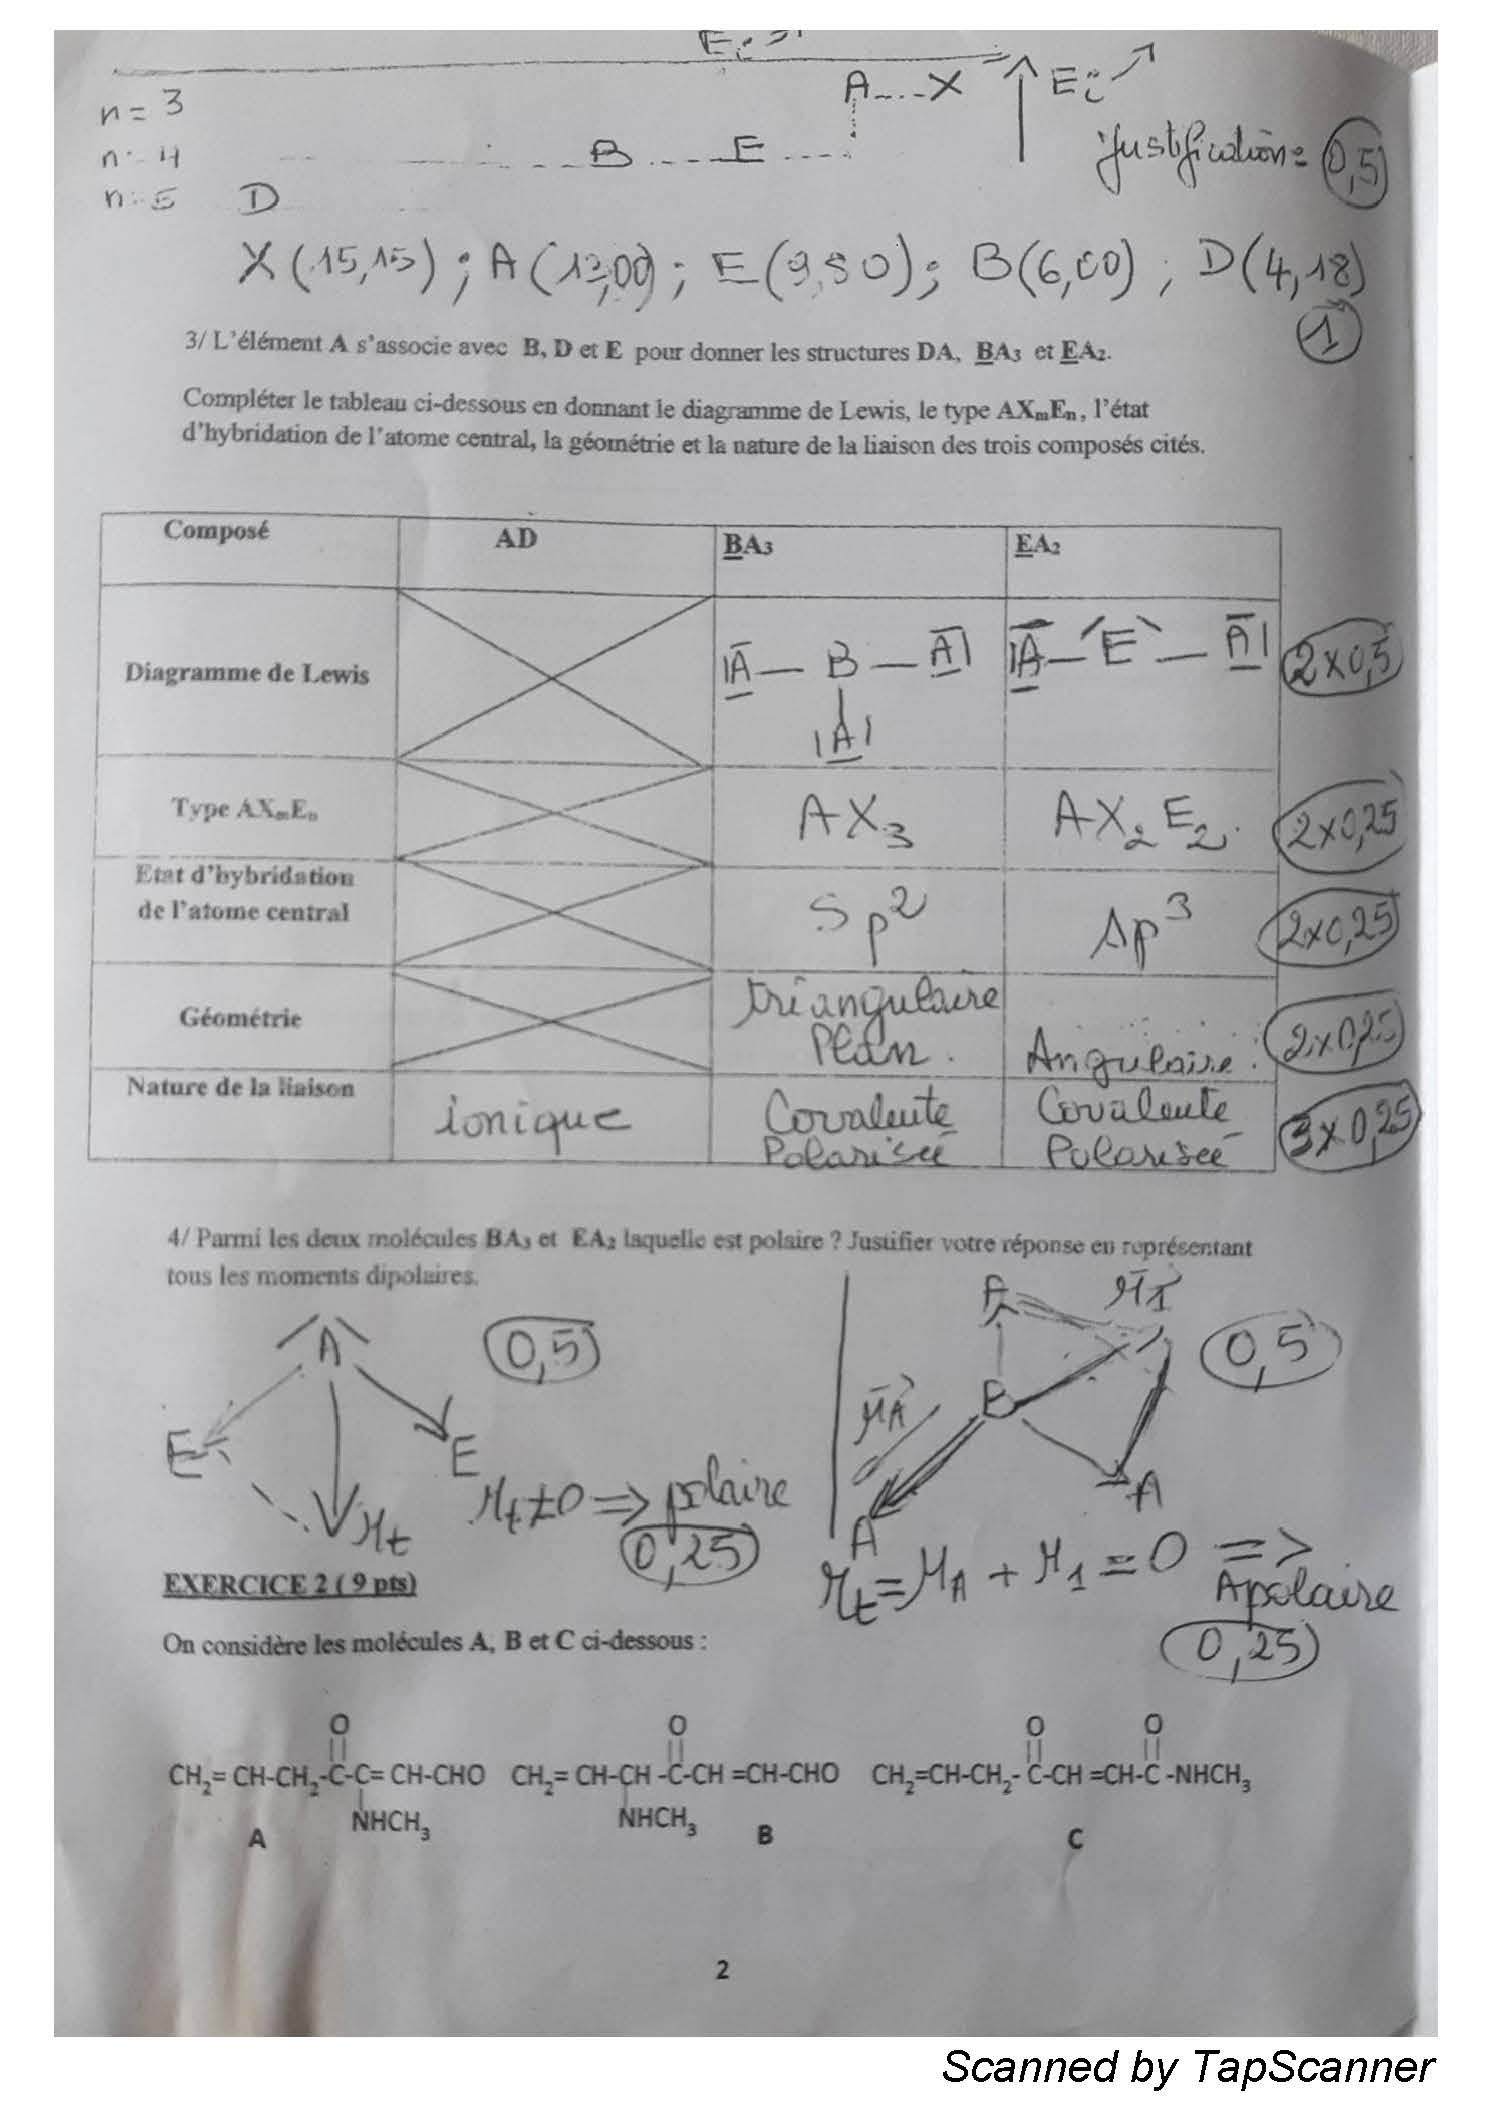 n = 3
A....X Ei
n = 4 B .... E ....
justification = 0,5
n = 5 D
X (15,15) ; A (13,00) ; E (9,80) ; B (6,00) ; D (4,18)
1
3/ L'élément A s'associe avec B, D et E pour donner les structures DA, BA3 et EA2.
Compléter le tableau ci-dessous en donnant le diagramme de Lewis, le type AXmEn, l'état
d'hybridation de l'atome central, la géométrie et la nature de la liaison des trois composés cités.
Composé AD BA3 EA2
Diagramme de Lewis |A — B — A| |A — E — A| 2x0,5
|A|
Type AXmEn AX3 AX2E2 2x0,25
Etat d'hybridation
de l'atome central Sp2 sp3 2x0,25
Géométrie triangulaire
Plan. Angulaire. 2x0,25
Nature de la liaison ionique Covalente Covalente 3x0,25
Polarisée Polarisée
4/ Parmi les deux molécules BA3 et EA2 laquelle est polaire ? Justifier votre réponse en représentant
tous les moments dipolaires.
A 0,5 A μ1 0,5
E E μA B
μt μt ≠ 0 => polaire A A
0,25
μt = μA + μ1 = 0 => Apolaire
0,25
EXERCICE 2 ( 9 pts)
On considère les molécules A, B et C ci-dessous :
O O O O
CH2= CH-CH2-C-C= CH-CHO CH2= CH-CH -C-CH =CH-CHO CH2=CH-CH2- C-CH =CH-C -NHCH3
NHCH3 NHCH3
A B C
2
Scanned by TapScanner